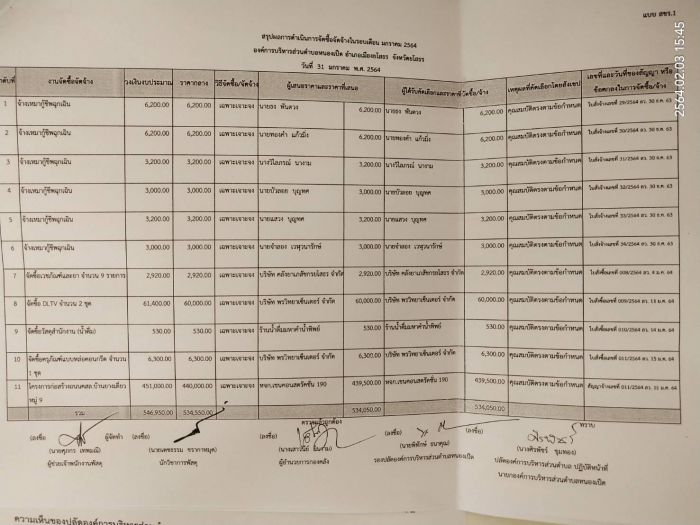 แบบ สขร.1
สรุปผลการดำเนินการจัดซื้อจัดจ้างในรอบเดือน มกราคม 2564
องค์การบริหารส่วนตำบลหนองเป็ด อำเภอเมืองยโสธร จังหวัดยโสธร
วันที่ 31 มกราคม พ.ศ. 2564
ลำดับที่ งานจัดซื้อจัดจ้าง วงเงินงบประมาณ ราคากลาง วิธีซื้อ/จัดจ้าง ผู้เสนอราคาและราคาที่เสนอ ผู้ได้รับคัดเลือกและราคาที่จัดซื้อ/จ้าง เหตุผลที่คัดเลือกโดยสังเขป เลขที่และวันที่ของสัญญา หรือข้อตกลงในการจัดซื้อ/จ้าง
1 จ้างเหมากู้ชีพฉุกเฉิน 6,200.00 6,200.00 เฉพาะเจาะจง นายธง พันดวง 6,200.00 นายธง พันดวง 6,200.00 คุณสมบัติตรงตามข้อกำหนด ใบสั่งจ้างเลขที่ 29/2564 ลว. 30 ธ.ค. 63
2 จ้างเหมากู้ชีพฉุกเฉิน 6,200.00 6,200.00 เฉพาะเจาะจง นายทองคำ แก้วมิ่ง 6,200.00 นายทองคำ แก้วมิ่ง 6,200.00 คุณสมบัติตรงตามข้อกำหนด ใบสั่งจ้างเลขที่ 30/2564 ลว. 30 ธ.ค. 63
3 จ้างเหมากู้ชีพฉุกเฉิน 3,200.00 3,200.00 เฉพาะเจาะจง นางวิไลภรณ์ นางาม 3,200.00 นางวิไลภรณ์ นางาม 3,200.00 คุณสมบัติตรงตามข้อกำหนด ใบสั่งจ้างเลขที่ 31/2564 ลว. 30 ธ.ค. 63
4 จ้างเหมากู้ชีพฉุกเฉิน 3,000.00 3,000.00 เฉพาะเจาะจง นายบัวลอย บุญทศ 3,000.00 นายบัวลอย บุญทศ 3,000.00 คุณสมบัติตรงตามข้อกำหนด ใบสั่งจ้างเลขที่ 32/2564 ลว. 30 ธ.ค. 63
5 จ้างเหมากู้ชีพฉุกเฉิน 3,200.00 3,200.00 เฉพาะเจาะจง นายแสวง บุญทศ 3,200.00 นายแสวง บุญทศ 3,200.00 คุณสมบัติตรงตามข้อกำหนด ใบสั่งจ้างเลขที่ 33/2564 ลว. 30 ธ.ค. 63
6 จ้างเหมากู้ชีพฉุกเฉิน 3,000.00 3,000.00 เฉพาะเจาะจง นายจำลอง เวฬุวนารักษ์ 3,000.00 นายจำลอง เวฬุวนารักษ์ 3,000.00 คุณสมบัติตรงตามข้อกำหนด ใบสั่งจ้างเลขที่ 34/2564 ลว. 30 ธ.ค. 63
7 จัดซื้อเวชภัณฑ์และยา จำนวน 9 รายการ 2,920.00 2,920.00 เฉพาะเจาะจง บริษัท คลังยาเภสัชกรยโสธร จำกัด 2,920.00 บริษัท คลังยาเภสัชกรยโสธร จำกัด 2,920.00 คุณสมบัติตรงตามข้อกำหนด ใบสั่งซื้อ 008/2564 ลว. 4 ม.ค. 64
8 จัดซื้อ DLTV จำนวน 2 ชุด 61,400.00 60,000.00 เฉพาะเจาะจง บริษัท พรวิทยาเซ็นเตอร์ จำกัด 60,000.00 บริษัท พรวิทยาเซ็นเตอร์ จำกัด 60,000.00 คุณสมบัติตรงตามข้อกำหนด ใบสั่งซื้อ 009/2564 ลว. 13 ม.ค. 64
9 จัดซื้อวัสดุสำนักงาน (น้ำดื่ม) 530.00 530.00 เฉพาะเจาะจง ร้านน้ำดื่มมหาคำน้ำทิพย์ 530.00 ร้านน้ำดื่มมหาคำน้ำทิพย์ 530.00 คุณสมบัติตรงตามข้อกำหนด ใบสั่งซื้อ 010/2564 ลว. 14 ม.ค. 64
10 จัดซื้อครุภัณฑ์แบบหล่อคอนกรีต จำนวน 1 ชุด 6,300.00 6,300.00 เฉพาะเจาะจง บริษัท พรวิทยาเซ็นเตอร์ จำกัด 6,300.00 บริษัท พรวิทยาเซ็นเตอร์ จำกัด 6,300.00 คุณสมบัติตรงตามข้อกำหนด ใบสั่งซื้อ 011/2564 ลว. 15 ม.ค. 64
11 โครงการก่อสร้างถนนคสล.บ้านยางเดี่ยว หมู่ 9 451,000.00 440,000.00 เฉพาะเจาะจง หจก.เซนคอนสตรัคชั่น 190 439,500.00 หจก.เซนคอนสตรัคชั่น 190 439,500.00 คุณสมบัติตรงตามข้อกำหนด สัญญาจ้างเลขที่ 011/2564 ลว.
รวม 546,950.00 534,550.00 534,050.00 534,050.00
ตรวจแล้วถูกต้อง ทราบ
(ลงชื่อ) ผู้จัดทำ (ลงชื่อ) (ลงชื่อ) (ลงชื่อ) (ลงชื่อ)
(นายศุภกร เทพมณี) (นางเสาวนีย์ (นายพิทักษ์ ธนาคุณ) (นางศิรพัชร์ ชุมทอง)
ผู้ช่วยเจ้าพนักงานพัสดุ นักวิชาการพัสดุ ผู้อำนวยการกองคลัง รองปลัดองค์การบริหารส่วนตำบลหนองเป็ด ปลัดองค์การบริหารส่วนตำบล ปฏิบัติหน้าที่
นายกองค์การบริหารส่วนตำบลหนองเป็ด
ความเห็นของปลัดองค์การบริหารส่วนตำบล
2564.02.03 15:45